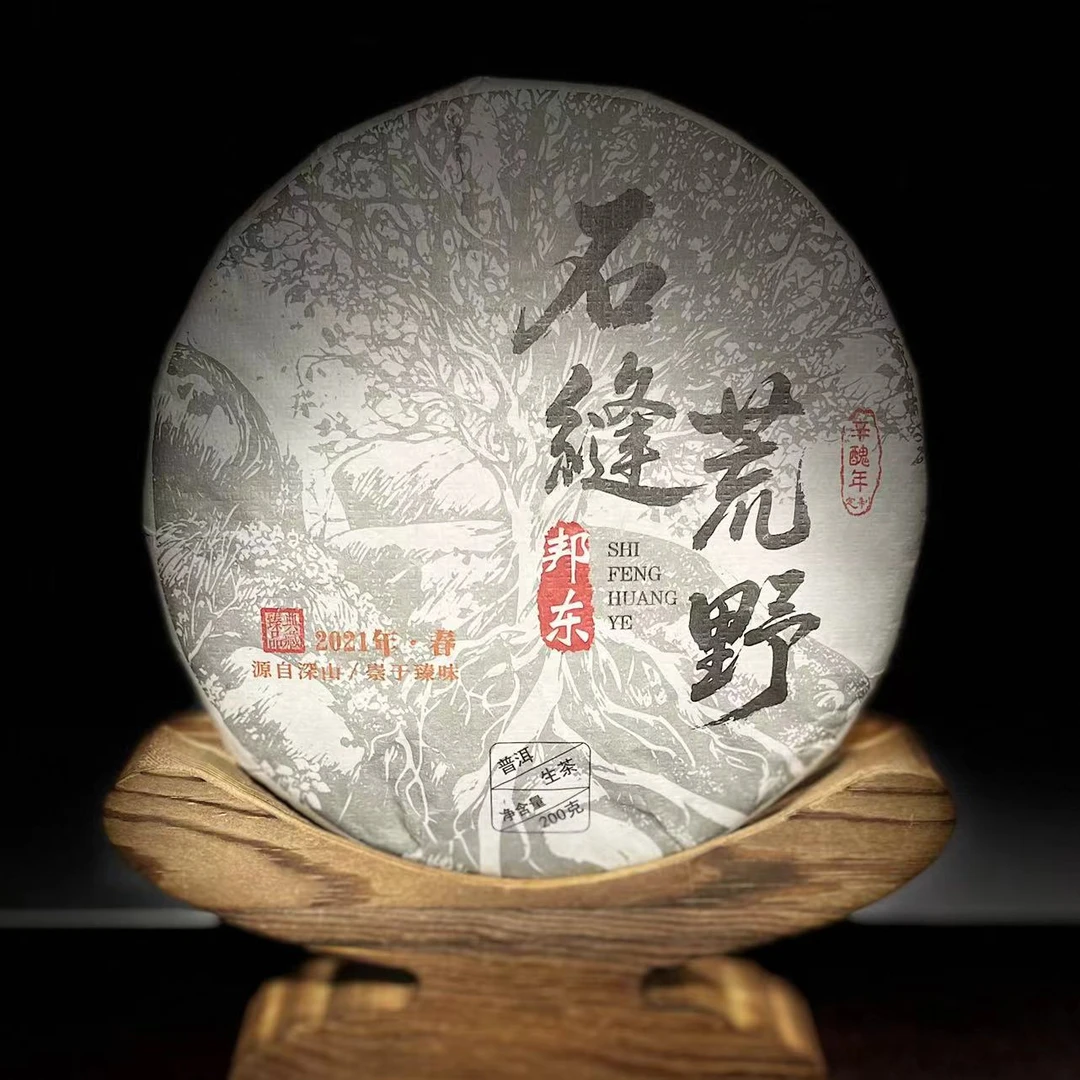 石缝
荒野
辛醜年
定制
邦东
SHI
FENG
HUANG
YE
典藏
臻品
2021年·春
源自深山/崇于臻味
普洱
生茶
净含量
200克